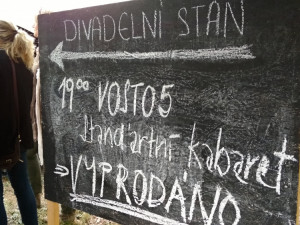 DIVADELNÍ STAN
19⁰⁰ VOSTO5
Stand'artní kabaret
VYPRODÁNO